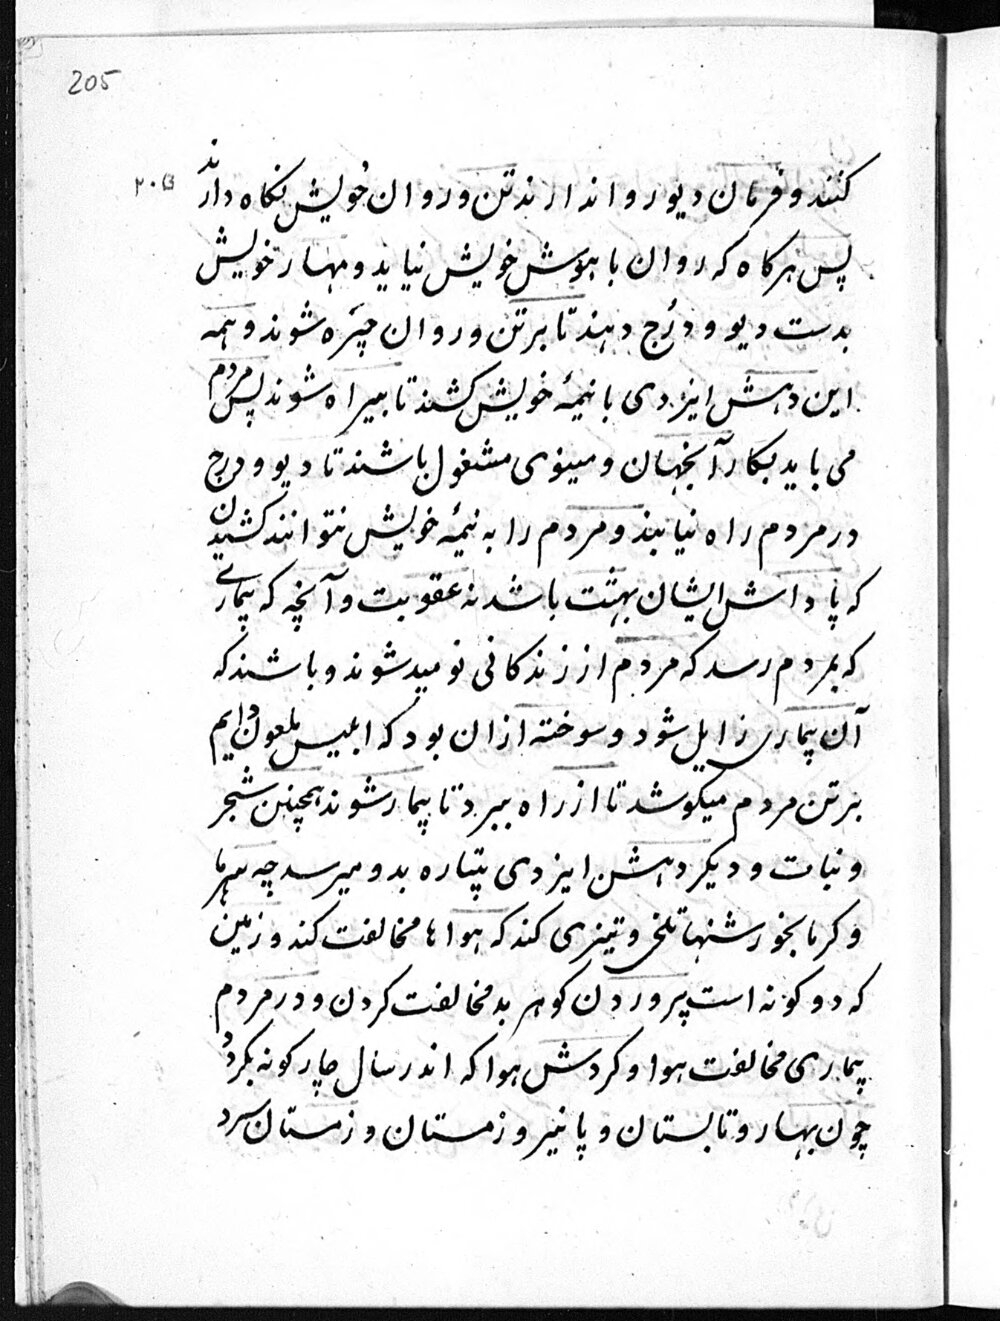 205
۲۰۵
کنند و فرمان دیو روا ندارند تن و روان خویش نکاه دارند
پس هرکاه که روان با هوش خویش نیاید و مهار خویش
بدست دیو و درُج دهند تا بر تن و روان چیَره شوند و همه
این دهش ایزدی با نیمهٔ خویش کشند تا بیراه شوند پس مردم
می باید بکار آنجهان و مینوی مشغول باشند تا دیو و درج
در مردم راه نیابند و مردم را به نیمهٔ خویش نتوانند کشیدن
که پاداش ایشان بهشت باشد نه عقوبت و آنچه که بیماریی
که بمردم رسد که مردم از زندکانی نومید شوند و باشند که
آن بیماری زایل شود و سوخته ازان بود که ابلیس ملعون دایم
بر تن مردم میکوشد تا از راه ببرد تا بیمار شوند همچنین شجر
و نبات و دیکر دهشن ایزدی پتیاره بدو میرسد چه سرما
و کرما بخورشنها تلخی و تیزی کند که هواها مخالفت کند و زمین
که دو کونه است پروردن کوهر بد مخالفت کردن و در مردم
بیماری مخالفت هوا و کردش هوا که اندر سال چار کونه بکردد
چون بهار و تابستان و پانیر و زمستان و زمستان سرد